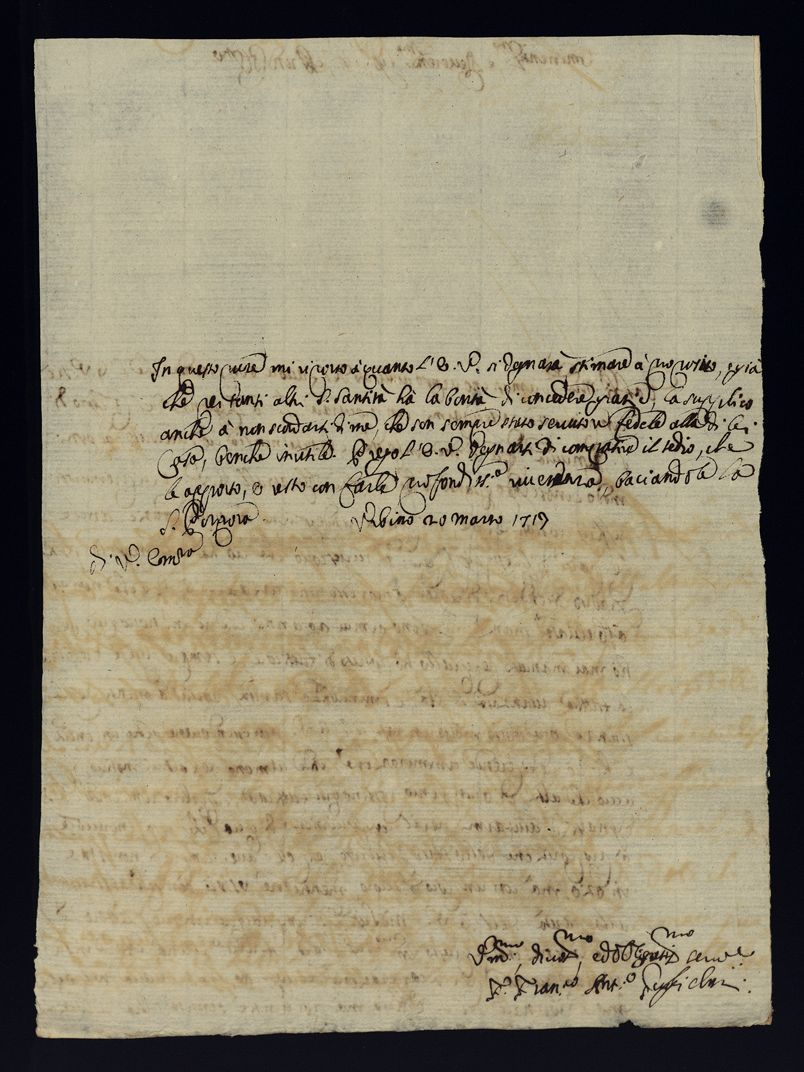 In questo mi riporto à quanto l'E. V. si degnarà stimare à proposito, e già
che per tanti altri S. Santità ha la bontà di concedere grazie, la supplico
anche à non scordarsi di me, che son sempre stato servitore fedele alla di lei
Casa, benche inutile. Prego l'E. V. degnarsi di compatire il tedio, che
le apporto, e resto con farle profondiss.e riverenze, baciandole la
S. Porpora. Urbino 20 Marzo 1719
Di V. Emza
Um.mo, divot.mo, ed obligatis.mo serv.e
F. Fran.co Ant.o